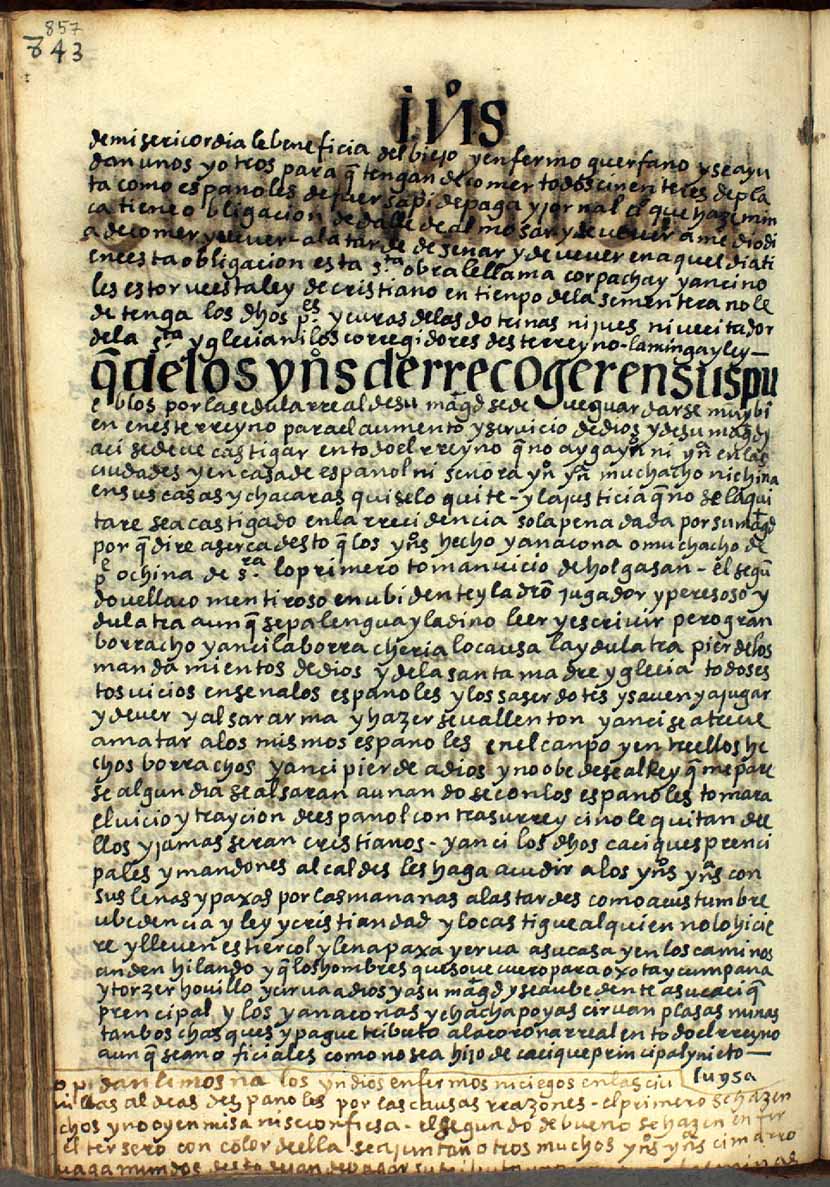 857
843
i.Uºs
de misericordia le beneficia del biejo y enfermo guerfano y se ayu
dan unos y otros para q̃ tengan de comer todos cinenteres de pla
ta como espanoles de fuersa pide paga y jornal el que haze min
ca tiene obligacion de dalle de almorsar y de vever a mediodi
a de comer y vever a la tarde de senar y de vever en aquel dia ti
en esta obligacion esta s.ta obra le llama corpachay y anci no
les estorve esta ley de cristiano en tienpo de la sementera no le
detenga los dhos p.es y curas de las dotrinas ni jues ni vecitador
de la s.ta yglecia ni los corregidores deste rreyno - la minga y ley —
q̃ de los ynºs de rrecoger en sus pu
eblos por la sedula rreal de su mag.d se deve guardarse muy bi
en en este rreyno para el aumento y servicio de dios y de su mag.d y
aci se deve castigar en todo el rreyno q̃ no ayga ynº ni ynª en las
ciudades y en casa de espanol ni senora ynº ynª muchacho ni china
en sus casas y chacaras qui se lo quite - y la justicia q̃ no se la qui
tare sea castigado en la rrecidencia so la pena dada por su mag.d
por q̃ dire aserca desto q̃ los ynºs hecho yanacona o muchacho de
p.e o china de s.ra lo primero toman vicio de holgasan - el segũ
do vellaco mentiroso enubidente y ladrõ jugador y peresoso - y
dulatra aunq̃ sepa lengua y ladino leer y escrivir pero gran
borracho y anci la borracheria lo causa la ydulatra pierde los
mandamientos de dios y de la santa madre yglecia todos es
tos vicios ensena los espanoles y los saserdotes y saven ya jugar
y vever y alsar arma y hazerse vallenton y anci se atreve
a matar a los mismos espanoles en el canpo y entre ellos he
chos borrachos y anci pierde a dios y no obedese al Rey q̃ me pare
se algun dia se alsaran aunandose con los espanoles tomara
el vicio y traycion de espanol contra su rrey ci no le quitan de
llos y jamas seran cristianos - y anci los dhos caciques prenci
pales y mandones alcaldes les haga acudir a los ynºs ynªs con
sus lenas y paxas por las mananas a las tardes como acustumbre
ubedencia y ley y cristiandad y lo castigue al quien no lo hicie
re y lleven estiercol y lena paxa yerva a su casa y en los caminos
anden hilando y q̃ los hombres que sove cuero para oxota y cumpana
y torzer hovillo y cirva a dios y a su mag.d y sea ubedente a su caciq̃
prencipal y los yanaconas y chachapoyas cirvan plasas minas
tanbos chasques y pague tributo a la corona rreal en todo el rreyno
aunq̃ sean oficiales como no sea hijo de cacique principal y nieto —
luysa
pidan limosna los yndios enfermos ni ciegos en las ciu
villas aldeas despanoles por las causas rrazones - el primero se hazen
chos y no oyen misa ni se confiesa - el segundo de bueno se hazen enfer
el tersero con color de ella se ajuntan otros muchos ynºs ynªs cimarro
vagamundos